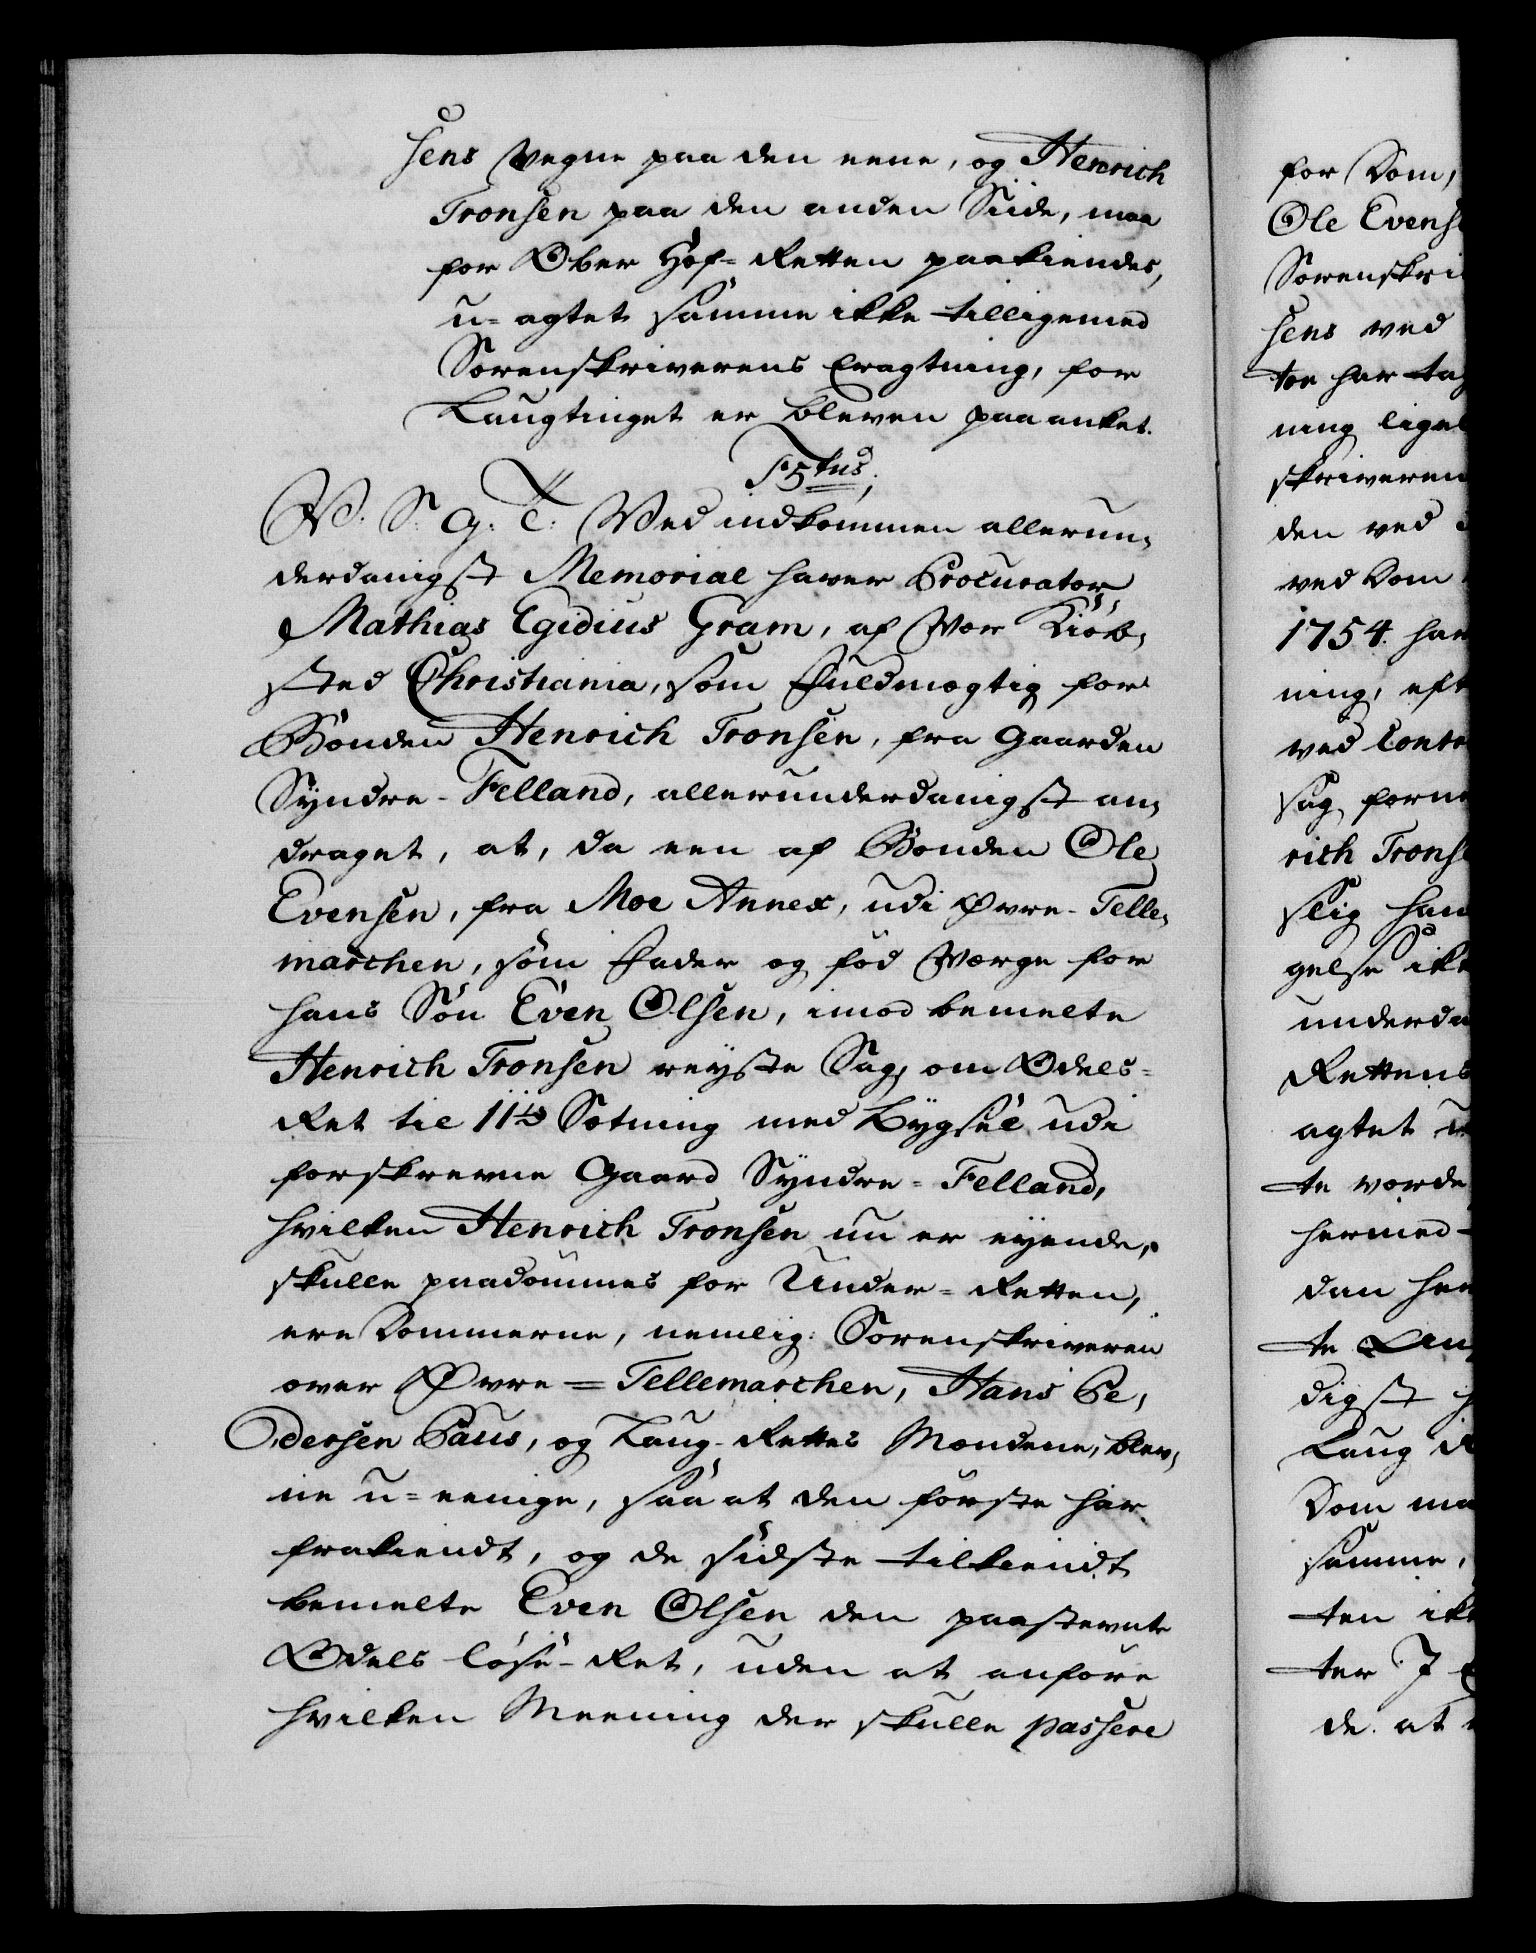 sens Vegne paa den eene, og Henrich
Tronsen paa den anden Siide, maa
for Ober Hof-Retten paakiendes,
u-agtet samme ikke tilligemed
Sorenskriverens Eragtning, for
Laugtinget er bleven paaanket.
F5tus;
V. S. G. T: Ved indkommen allerun-
derdanigst Memorial haver Procurator
Mathias Egidius Gram, af Vor Kiöb-
sted Christiania, som Fuldmægtig for
Bonden Henrich Tronsen, fra Gaarden
Syndre-Felland, allerunderdanigst an-
draget, at, da een af Bonden Ole
Evensen, fra Moe Annex, udi Øvre-Telle-
marchen, som Fader og fød Værge for
hans Søn Even Olsen, imod bemelte
Henrich Tronsen reyste Sag, om Odels-
Ret til 11 Sætning med Bygsel udi
forskrevne Gaard Syndre-Felland,
hvilken Henrich Tronsen nu er eyende,
skulle paadømmes for Under-Retten,
ere Dommerne, nemlig: Sorenskriveren
over Øvre-Tellemarchen, Hans Pe-
dersen Paus, og Laug-Rettes Mændene, blev-
ne u-eenige, saa at den første har
frakiendt, og de sidste tilkiendt
bemelte Even Olsen den paastevnte
Odels løse-Ret, uden at anføre
hvilken Meening der skulle passere
for Dom,
Ole Evens
Sorenskri
sens ved
tor har tag
ning ligel
skriveren
den ved
ved Dom
1754. har
ning, eft
ved Contr
sag forn
rich Trons
slig han
gelse ikk
underda
Rettens
agtet
te vorde
hermed
dan her
te Lau
digst h
Laug R
Dom ma
samme,
ten ikk
ter 7
de at